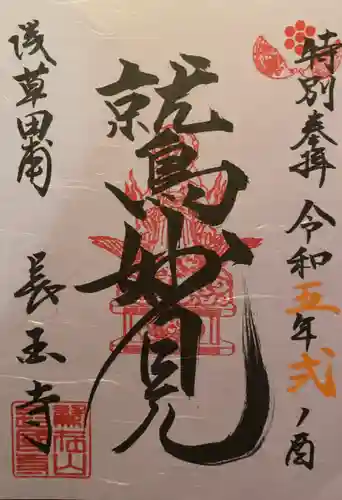 特別奉拝
令和五年弐ノ酉
鷲妙見
浅草田甫
長国寺